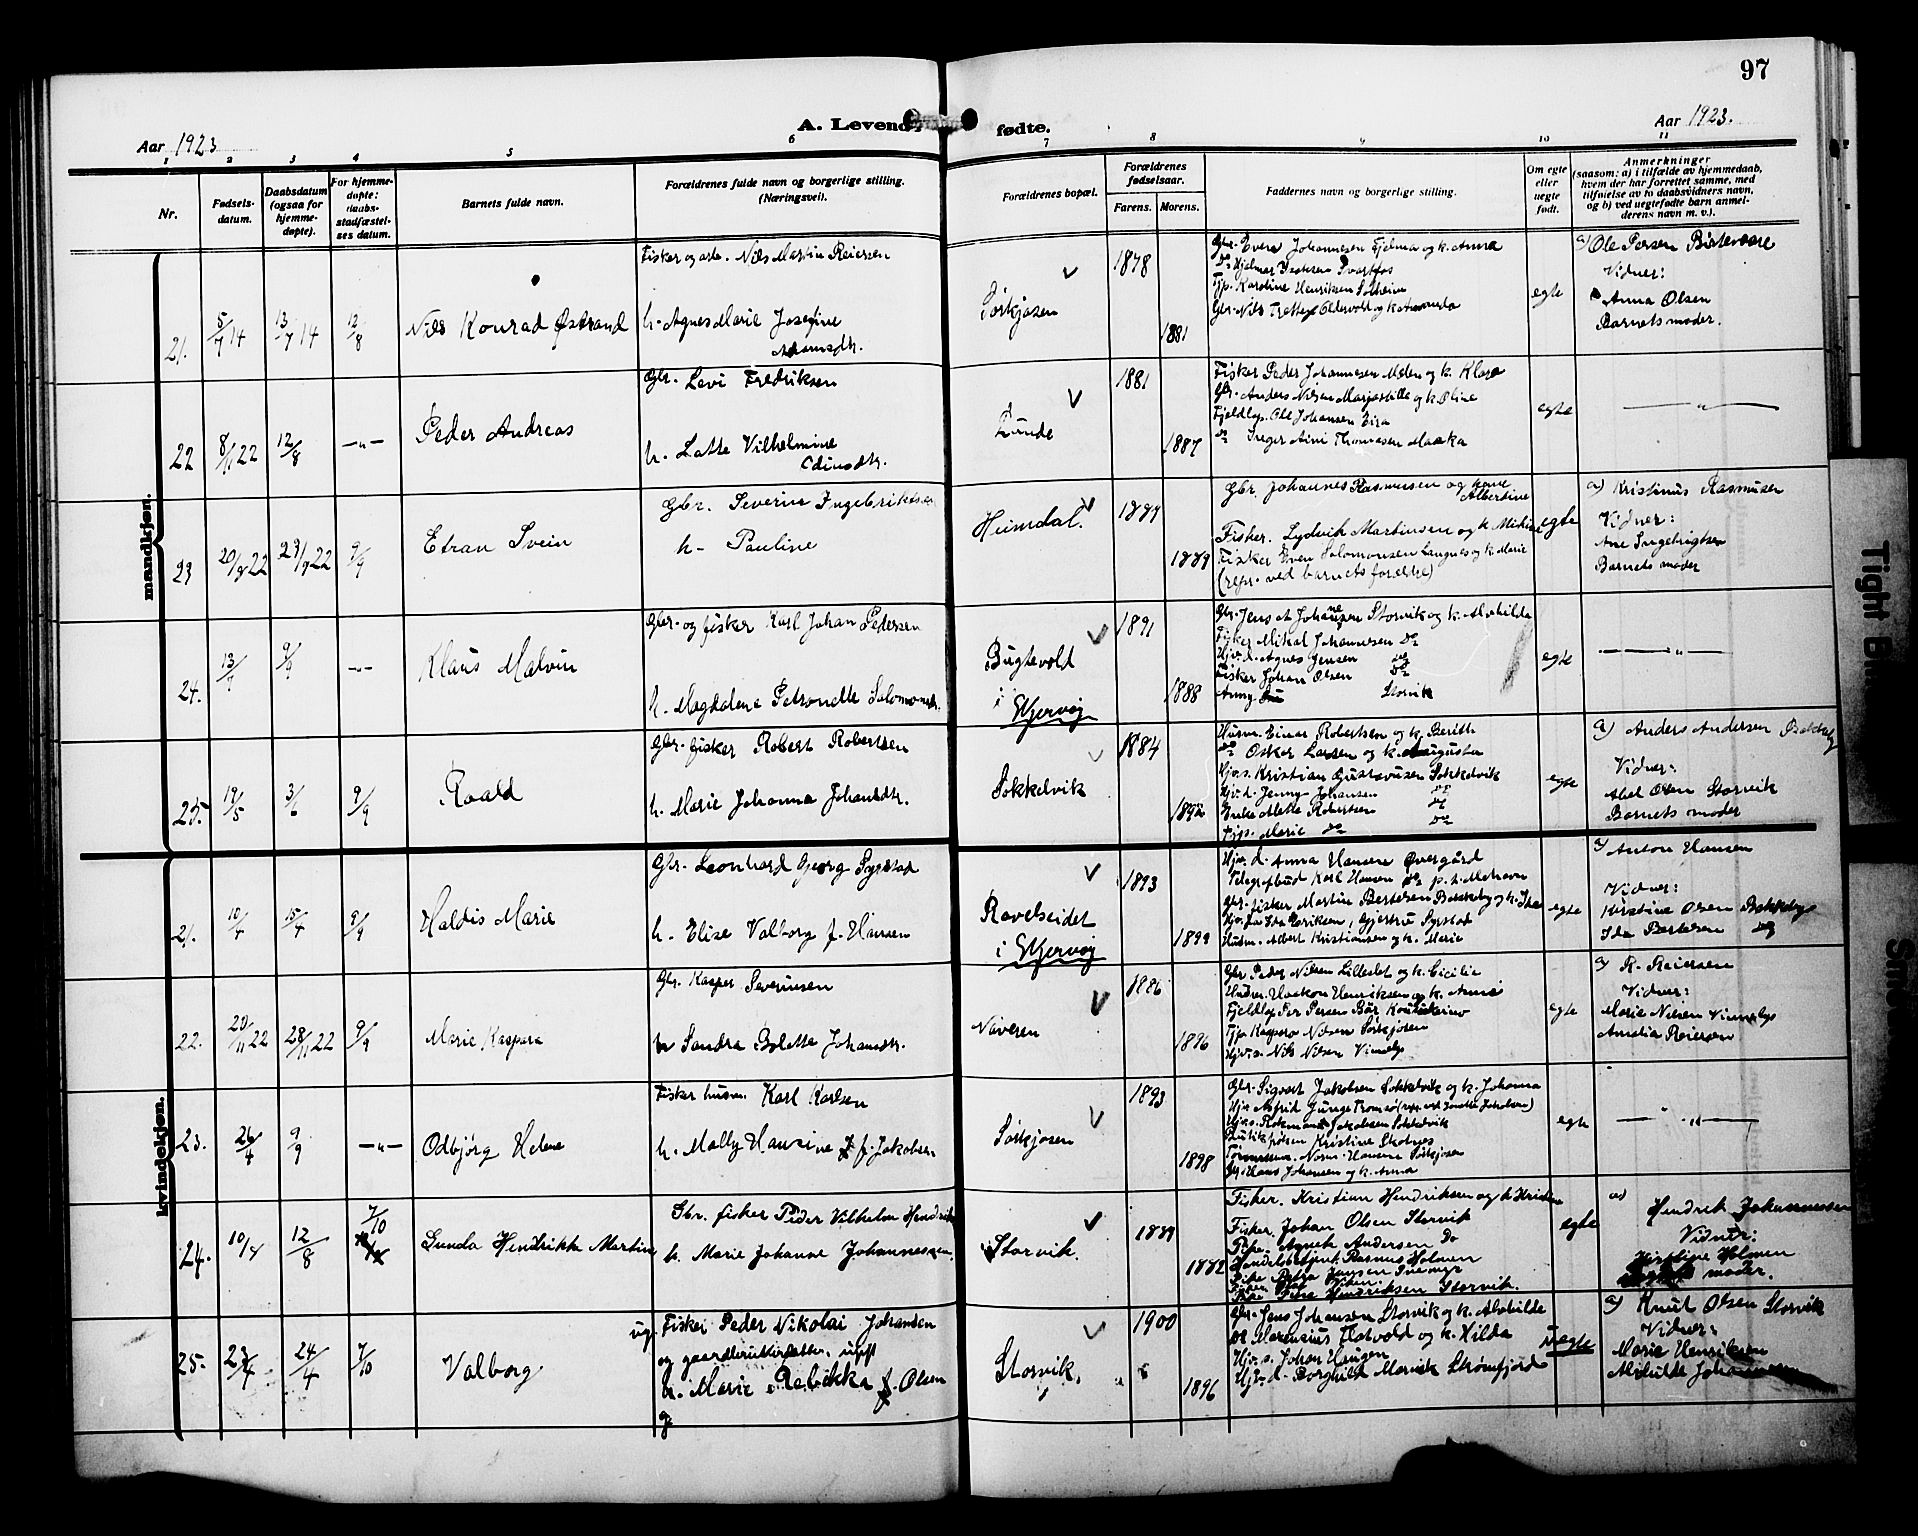 97
A. Levende fødte.
Aar 1923
Aar 1923.
1 2 3 4 5 6 7 8 9 10 11
Nr.
Fødsels-
datum.
Daabsdatum
(ogsaa for
hjemme-
døpte).
For hjemme-
døpte:
daabs-
stadfæstel-
ses datum.
Barnets fulde navn.
Forældrenes fulde navn og borgerlige stilling.
(Næringsvei).
Forældrenes bopæl.
Forældrenes
fødselsaar.
Farens. Morens.
Faddernes navn og borgerlige stilling.
Om egte
eller
uegte
født.
Anmerkninger
(saasom: a) i tilfælde av hjemmedaab,
hvem der har forrettet samme, med
tilføielse av to daabsvidners navn,
og b) ved uegtefødte barn anmel-
derens navn m. v.).
mandkjøn.
21. 5/7 14 13/7 14 12/8 Nils Konrad Østrand
Fisker og arb. Nils Martin Reiersen
h. Agnes Marie Josefine
Adamsdtr.
Sørkjosen
1878
1881
Gbr. Evert Johannesen Fjelmo og k. Anna
Do Hjalmar Isaksen Svartfos
Tjp. Karoline Henriksen Solheim
egte
a) Ole Persen Bistevare
Vidner:
Anna Olsen
Barnets moder.
22 8/11 22 12/8 —"— Peder Andreas
Gbr. Levi Fredriksen
h. Lotte Vilhelmine
Odinsdtr.
Lunde
1881
1887
Fisker Peder Johannesen Molen og k. Klara
Gbr. Anders Nilsen Marjastille og k. Oline
Fjeldlap. Ole Johansen Eira
Do Inger Aini Thomesen Maaka
egte
—"—
23 20/9 22 29/9 22 9/9 Etran Svein
Gbr. Severin Ingebriktsen
h- Pauline
Heimdal.
1889
1889
Gbr. Johannes Rasmussen og kone
Albertine
Fisker. Lydvik Martinsen og k. Mikine
Fisker Even Salomonsen Langnes og k. Marie
(repr. ved barnets forældre)
egte
a) Kristinus Rasmusen
Vidner:
Ane Ingebrigtsen
Barnets moder
24. 13/7 9/9 —"— Klaus Malvin
Gbr. og fisker Karl Johan Pedersen
h. Magdalena Petronelle Salomonsdtr.
Bugtevold
i Skjervøy
1891
1888
Gbr. Jens A Johannesen Storvik og k. Alvhilda
Fisker Mikal Johannesen Do
Hjv. d. Agnes Jensen Do
Fisker Johan Olsen Do
Anny Storvik
egte
—"—
25. 19/5 3/6 9/9 Roald
Gbr. fisker Robert Robertsen
h. Marie Johanna Johansdtr.
Sokkelvik
1884
1892
Husm. Einar Robertsen og k. Berith
Do Oskar Larsen og k. Augusta
Hjv. s. Kristian Gustavusen Sokkelvik
Hjv. d. Jenny Johansen Do
Enke Alette Robertsen Do
Tjp. Marie Do Do
egte
a) Anders Andersen
Vidner:
Abel Olsen Storvik
Barnets moder
kvindekjøn.
21. 10/4 15/4 9/9 Haldis Marie
Gbr. Leonhard Georg Syrstad
h. Elise Valborg f. Hansen
Ravelseidet
i Skjervøy
1893
1899
Hjv. d. Anna Hansen Øvergård
Telegrafbud Karl Hansen
Gbr. fisker Martin Bertelsen Bakkeby og k. Ida
Husm. Albert Kristiansen og k. Marie
egte
a) Anton Hansen
Vidner:
Kristine Olsen Bakkeby
Ida Bertelsen Do
22. 20/11 22 28/11 22 9/9 Marie Kaspara
Gbr. Kasper Severinsen
h Sandra Bolette Johansdtr.
Naveren
1886
1896
Gbr. Peder Nilsen Lilleslet og k. Cicilie
Husm. Haakon Henriksen og k. Anna
Fjeldlap Per Persen Bær Koutokeino
Tjp. Kaspara Nilsen Sørkjosen
Hjv. s. Nils Nilsen Vinnelys
egte
a) R. Reiersen
Vidner:
Marie Nilsen Vinnelys
Amalia Reiersen
23. 26/4 9/9 —"— Odbjørg Helene
Fisker husm. Karl Karlsen
h. Molly Hansine f. Jakobsen
Sørkjosen
1893
1898
Gbr. Sigvart Jakobsen Sokkelvik og k. Johanna
Butikfrøken Kristine Skotnes
Gbr. Hans Johansen og k. Anna
egte
—"—
24. 10/8 12/8 7/10 Gunda Hendrikke Martine
Gbr. fisker Peder Vilhelm Hendriksen
h. Marie Johanne Johannessen
Storvik.
1889
1882
Fisker. Kristian Hendriksen og k Kristine
Fisker. Johan Olsen Storvik
Pike. Agneth Andersen Do
Handelsbetjent. Rasmus Holmen
Pike Petra Jensen
Hendriksen Storvik.
egte
a) Hendrik Johannessen
Vidner:
Kirstine Holmen
moder.
25. 23/4 24/4 7/10 Valborg
ug. Fisker Peder Nikolai Johansen
og gaardbrukerdatter, ugift
h. Marie Rebekka f. Olsen
Storvik,
1900
1896
Gbr. Jens Johansen Storvik og k. Alvhilde
Do Marensius Flatvold og k. Hilda
Hjv. s. Johan Haugen
Hjv. d. Borghild Marvik Strømfjord
uegte
a) Knut Olsen Storvik
Vidner:
Marie Henriksen
Alvhilde Johansen
Tight Bin